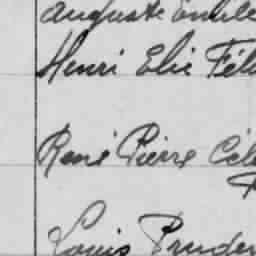 Auguste Emile
Henri Elie Fél
René Pierre Cél
Louis Pruden